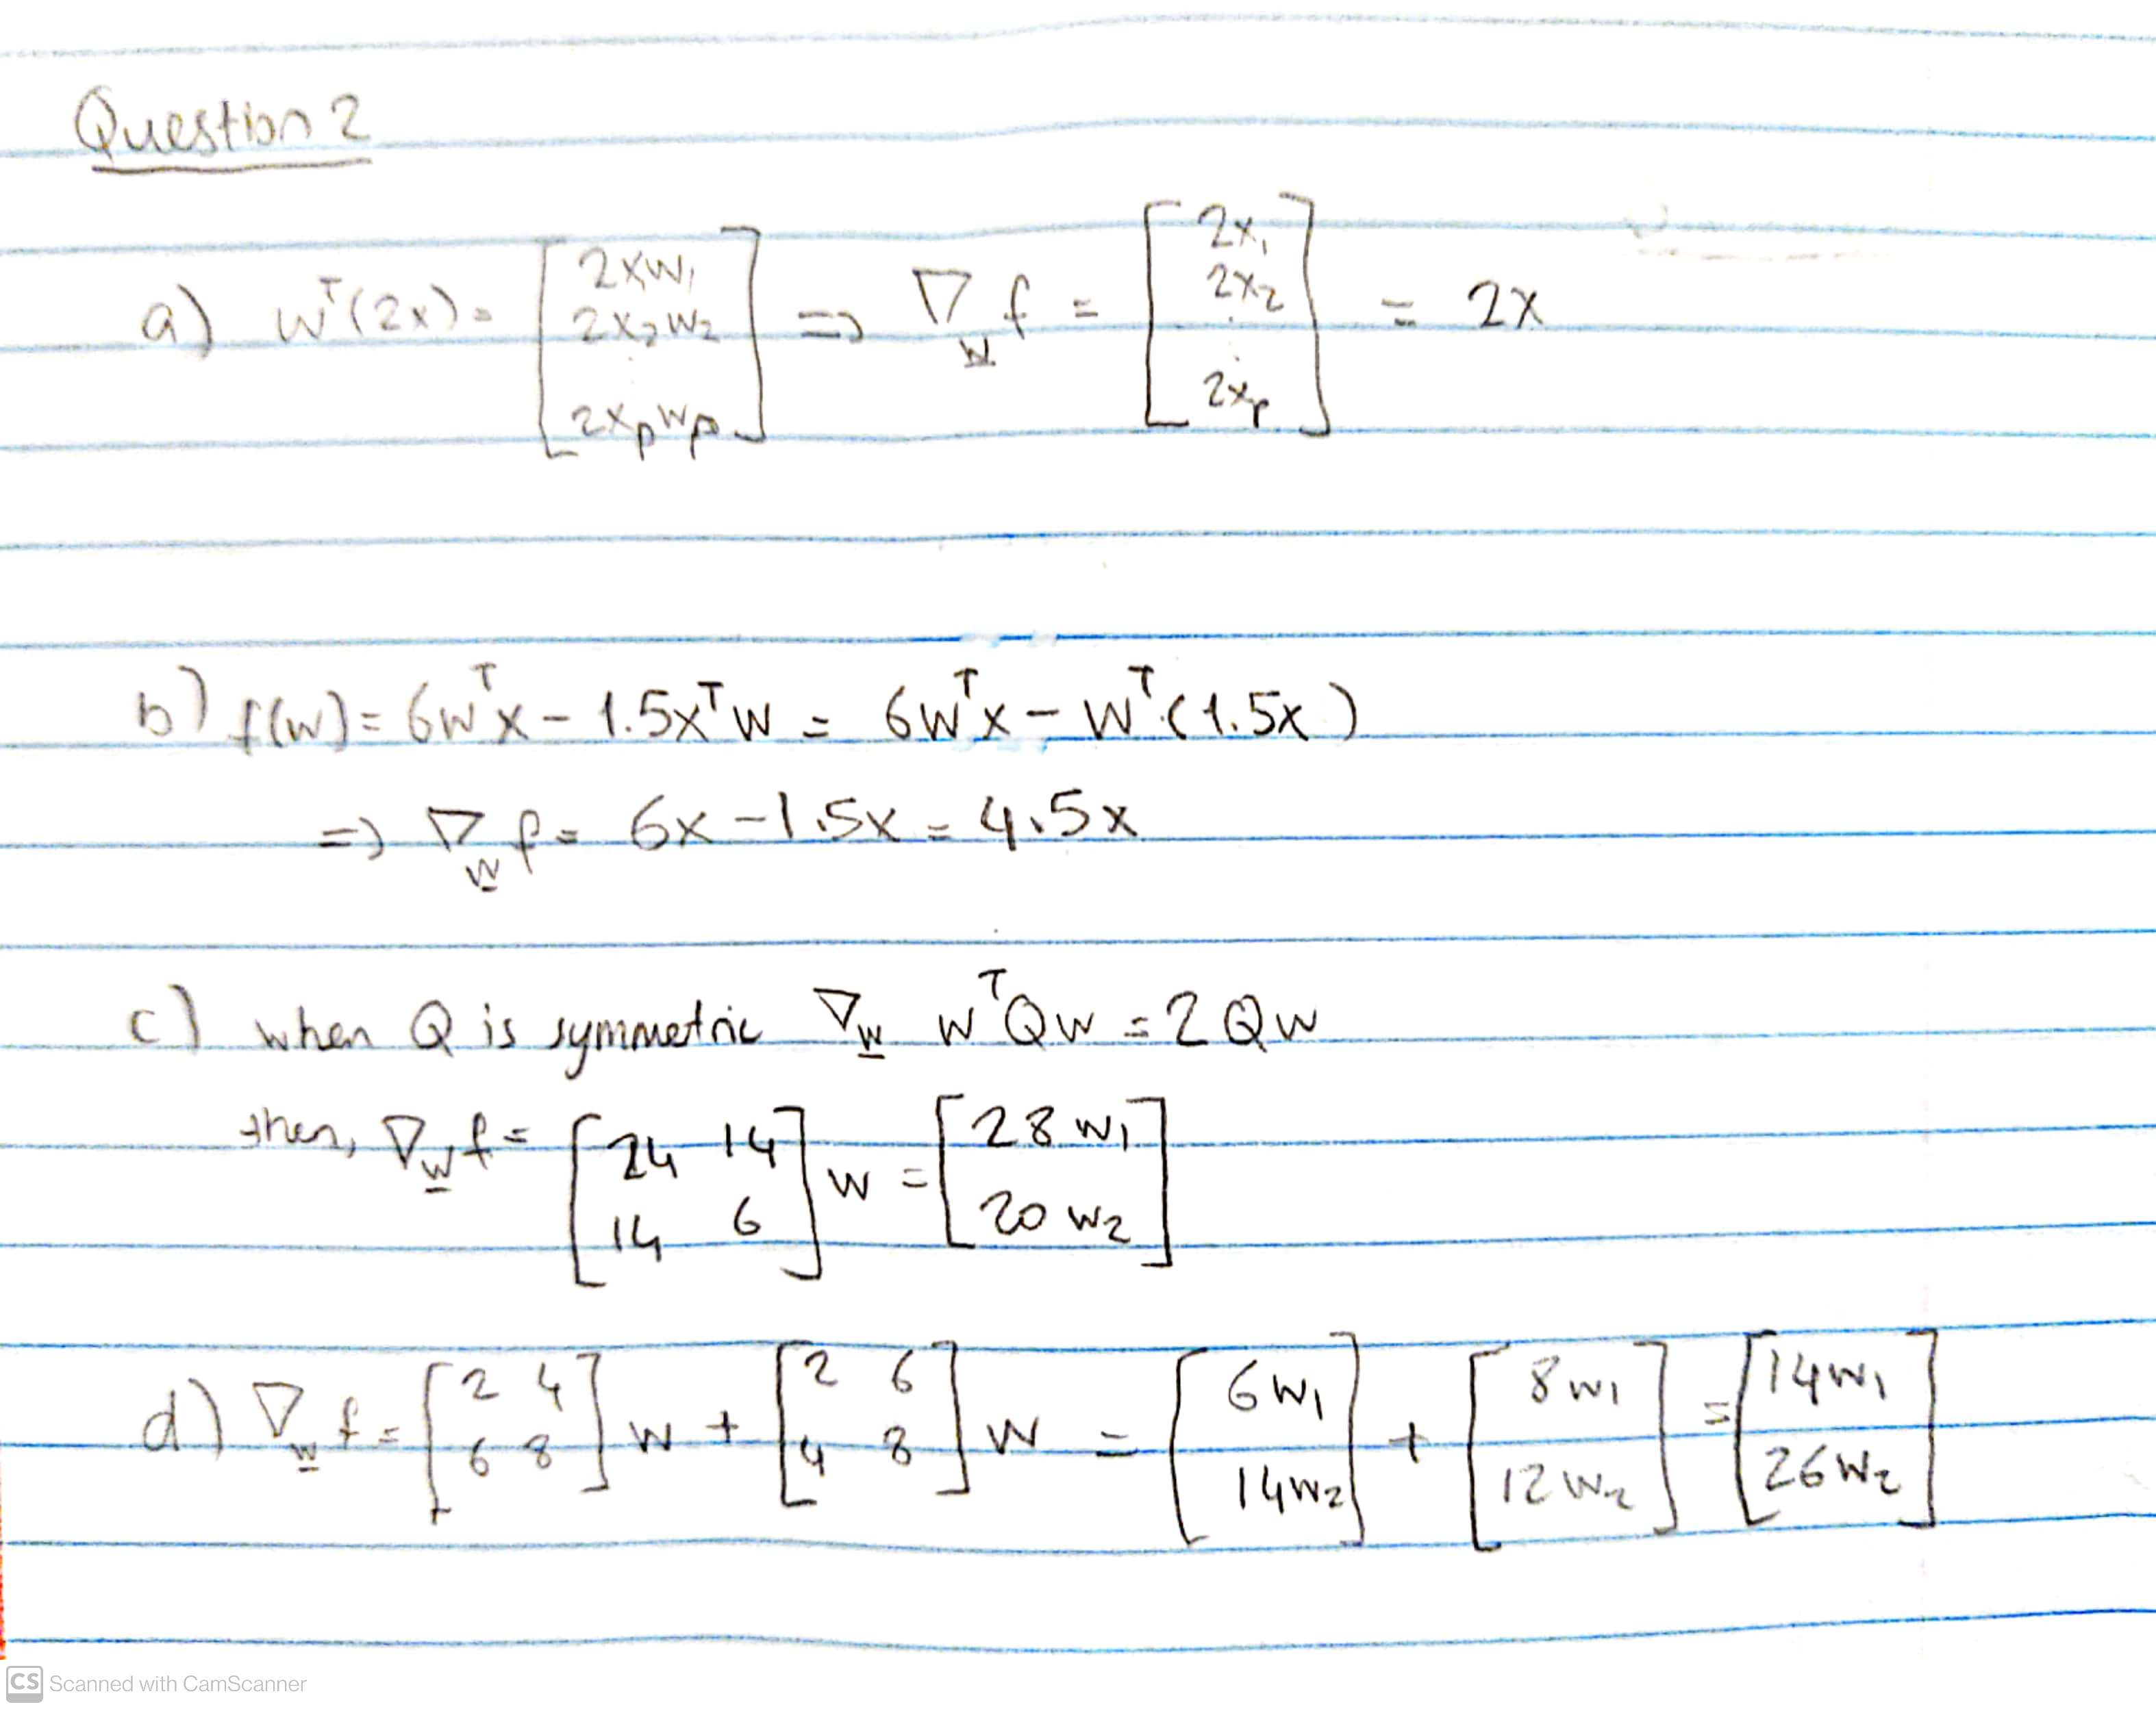 Question 2
a) wᵀ(2x) = [2x₁w₁ 2x₂w₂ ⋮ 2xₚwₚ] => ∇_w f = [2x₁ 2x₂ ⋮ 2xₚ] = 2x
b) f(w) = 6wᵀx - 1.5xᵀw = 6wᵀx - wᵀ(1.5x)
=> ∇_w f = 6x - 1.5x = 4.5x
c) when Q is symmetric ∇_w wᵀQw = 2Qw
then, ∇_w f = [24 14; 14 6] w = [28w₁; 20w₂]
d) ∇_w f = [2 4; 6 8] w + [2 6; 4 8] w = [6w₁; 14w₂] + [8w₁; 12w₂] = [14w₁; 26w₂]
CS Scanned with CamScanner